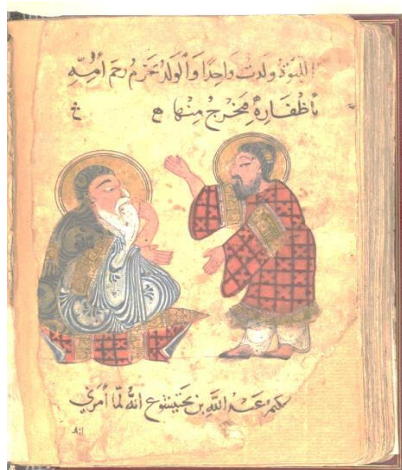 اللبوة ولدت واحدًا وَالولدُ يَخرم رَحم أمّهِ
بأظفاره فيخرج منها
عبد الله بن بختيشوع انه لمّا أمرني